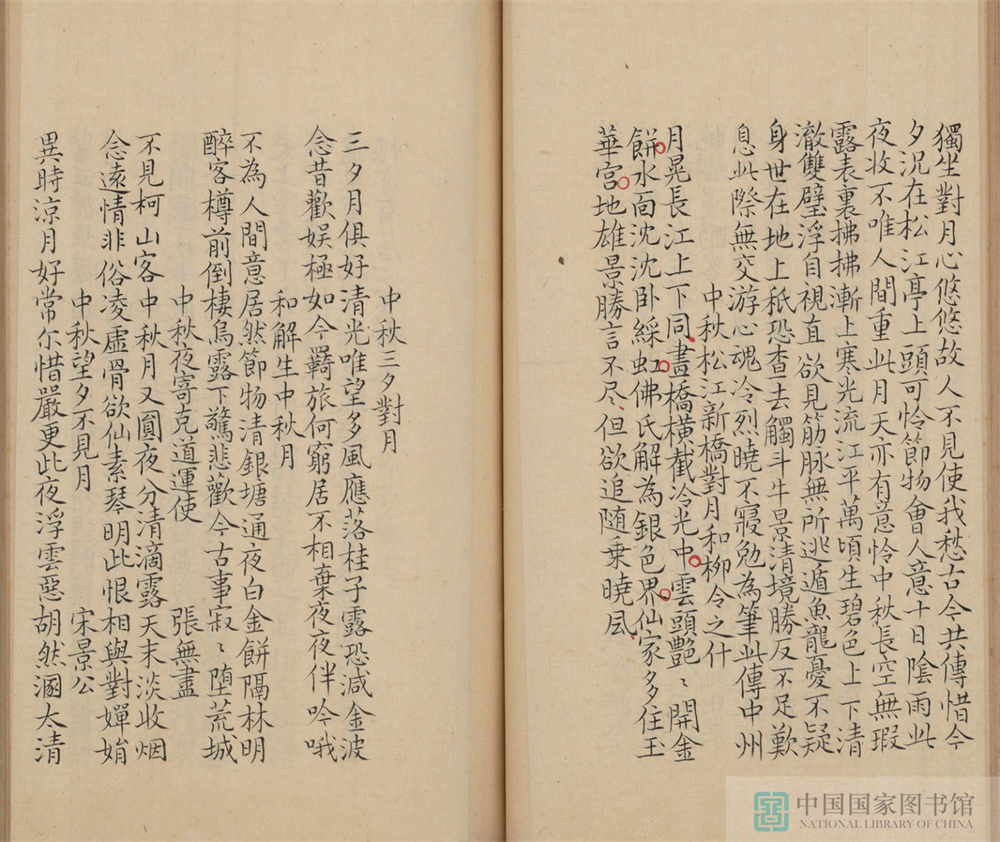 獨坐對月心悠悠故人不見使我愁古今共傳惜今
夕況在松江亭上頭可怜節物會人意十日陰雨此
夜收不唯人間重此月天亦有意怜中秋長空無瑕
露表裏拂拂漸上寒光流江平萬頃生碧色上下清
澈雙璧浮自視直欲見筋脉無所逃遁魚龍憂不疑
身世在地上秖恐查去觸斗牛景清境勝反不足歎
息此際無交游心魂冷烈曉不寢勉為筆此傳中州
中秋松江新橋對月和柳令之什
月晃長江上下同畫橋橫截冷光中雲頭艷〻開金
餅水面沈沈卧綵虹佛氏解為銀色界仙家多住玉
華宮地雄景勝言不尽但欲追随乗曉風
中秋三夕對月
三夕月俱好清光唯望多風應落桂子露恐減金波
念昔歡娱極如今羇旅何窮居不相棄夜夜伴吟哦
和解生中秋月
不為人間意居然節物清銀塘通夜白金餅隔林明
醉客樽前倒棲烏露下驚悲歡今古事寂〻堕荒城
中秋夜寄克道運使 張無盡
不見柯山客中秋月又圓夜分清滴露天末淡收烟
念遠情非俗凌虛骨欲仙素琴明此恨相與對嬋娟
中秋望夕不見月 宋景公
異時涼月好常尓惜嚴更此夜浮雲惡胡然溷太清
中国国家图书馆
NATIONAL LIBRARY OF CHINA